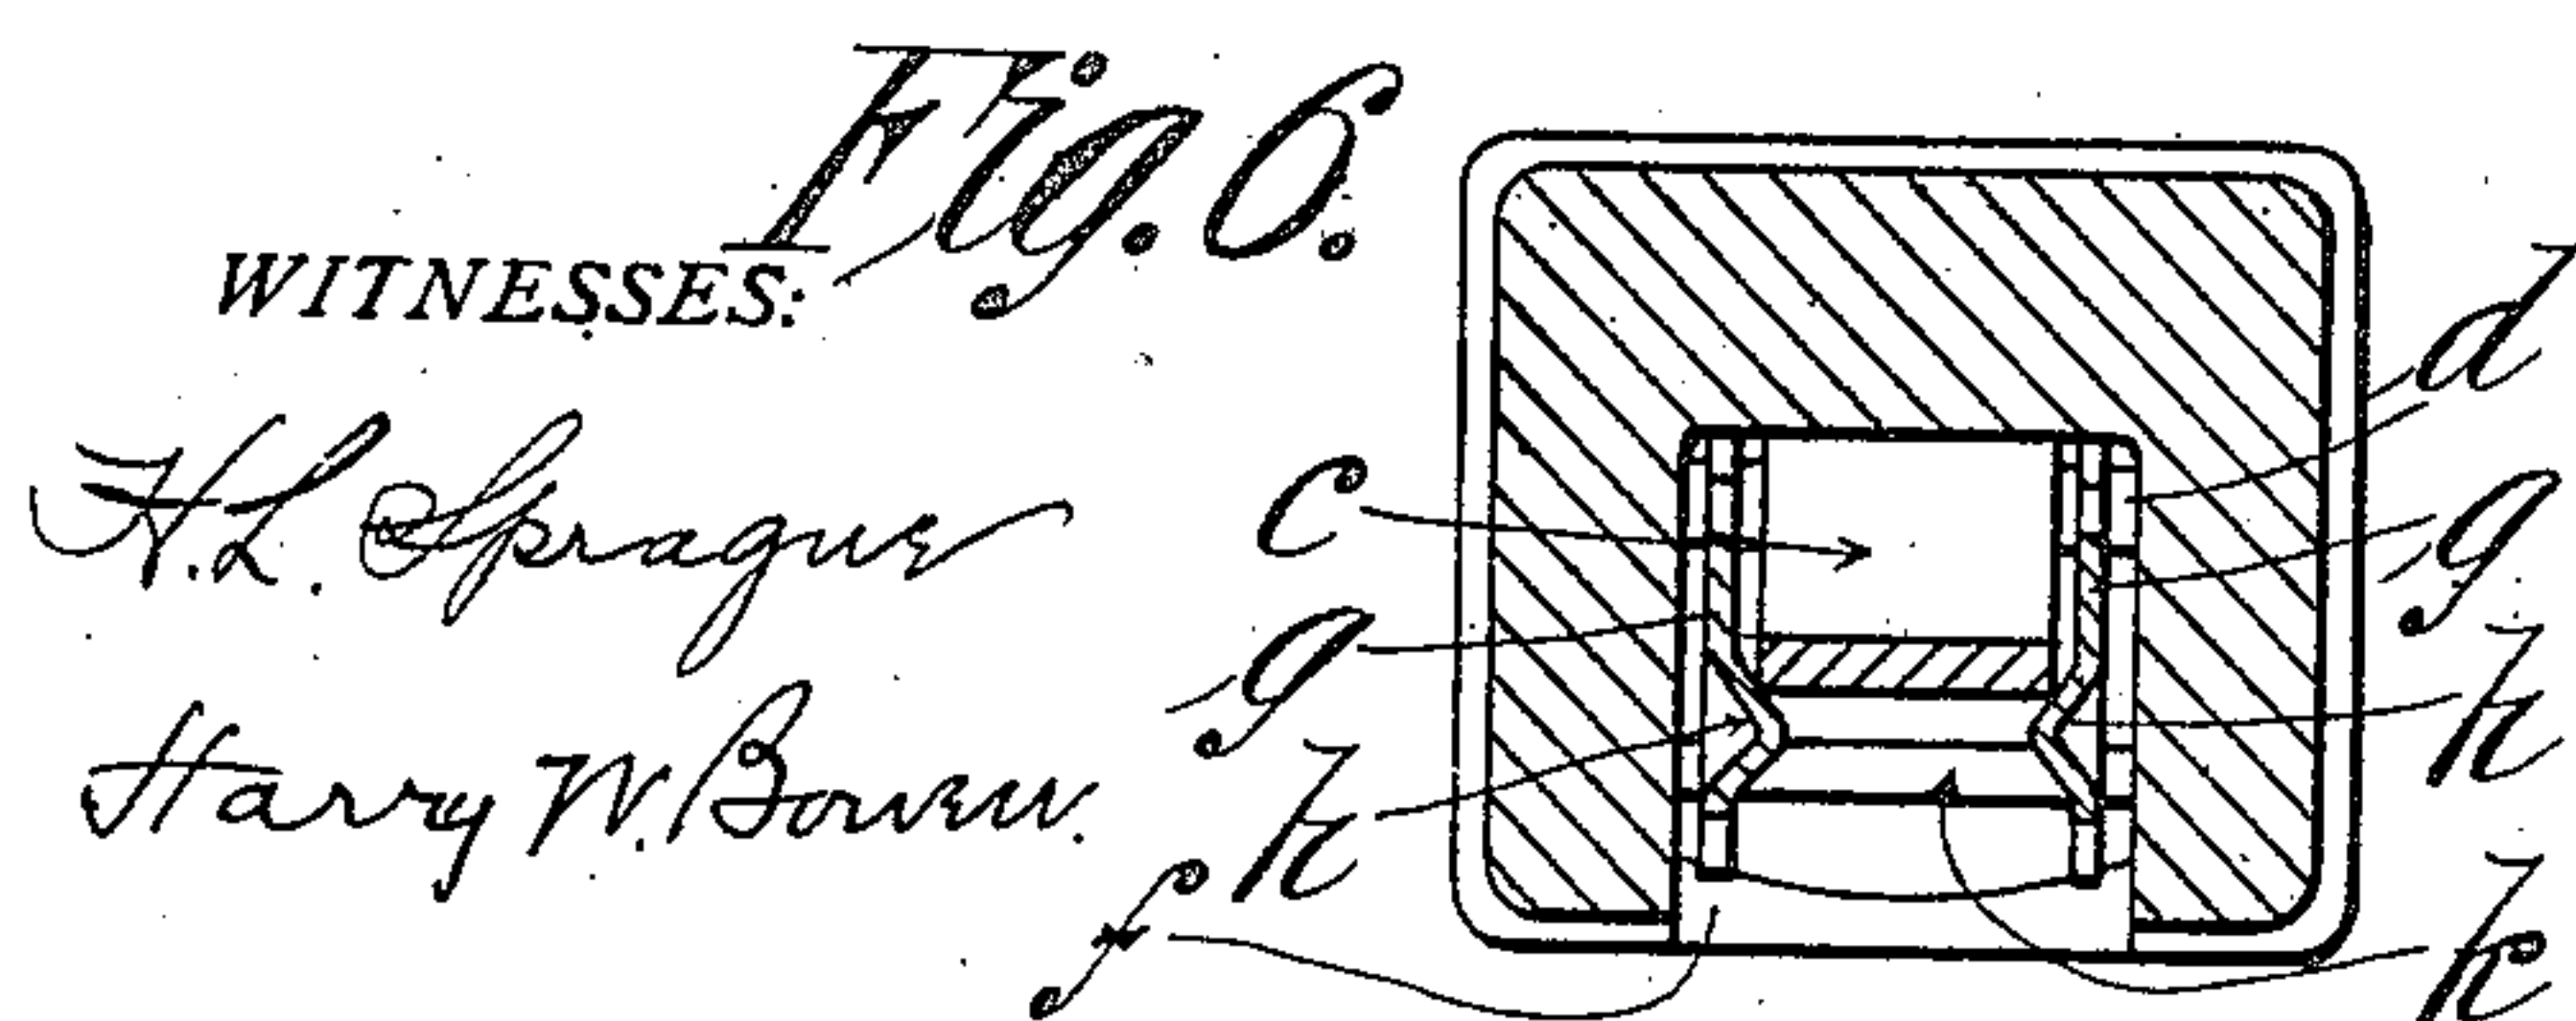 Fig. 6.
WITNESSES:
H. L. Sprague
Harry W. Bowen.
d
c
g
g
h
h
f
k